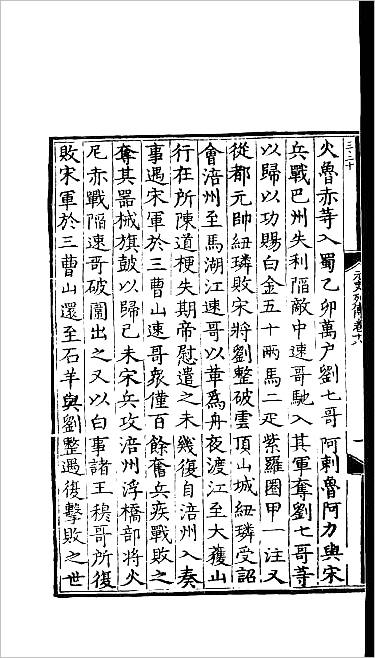 三·二十
元史列傳卷十八
一
火魯赤等入蜀乙卯萬户劉七哥阿剌魯阿力與宋
兵戰巴州失利陷敵中速哥馳入其軍奪劉七哥等
以歸以功賜白金五十兩馬二疋紫羅圈甲一注又
從都元帥紐璘敗宋將劉整破雲頂山城紐璘受詔
會涪州至馬湖江速哥以革爲舟夜渡江至大獲山
行在所陳道梗失期帝慰遣之未幾復自涪州入奏
事遇宋軍於三曹山速哥衆僅百餘奮兵疾戰敗之
奪其器械旗鼓以歸己未宋兵攻涪州浮橋部將火
尼赤戰陷速哥破圍出之又以白事諸王穆哥所復
敗宋軍於三曹山還至石羊與劉整遇復擊敗之世